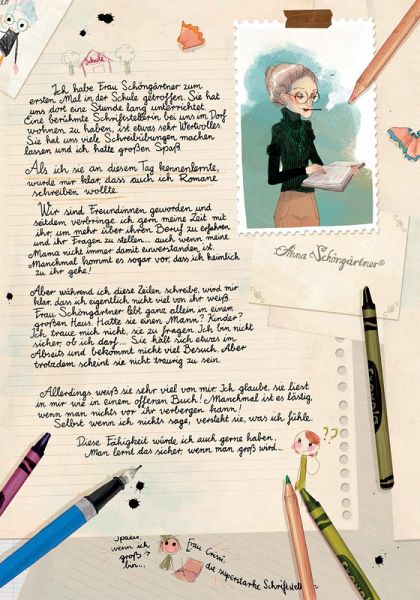 Schule
Ich habe Frau Schöngärtner zum
ersten Mal in der Schule getroffen. Sie hat
uns dort eine Stunde lang unterrichtet.
Eine berühmte Schriftstellerin bei uns im Dorf
wohnen zu haben, ist etwas sehr Wertvolles.
Sie hat uns viele Schreibübungen machen
lassen und ich hatte großen Spaß.
Als ich sie an diesem Tag kennenlernte,
wurde mir klar, dass auch ich Romane
schreiben wollte.
Wir sind Freundinnen geworden und
seitdem verbringe ich gern meine Zeit mit
ihr, um mehr über ihren Beruf zu erfahren
und ihr Fragen zu stellen... auch wenn meine
Mama nicht immer damit einverstanden ist.
Manchmal kommt es sogar vor, dass ich heimlich
zu ihr gehe!
Anna Schöngärtner
Aber während ich diese Zeilen schreibe, wird mir
klar, dass ich eigentlich nicht viel von ihr weiß.
Frau Schöngärtner lebt ganz allein in einem
großen Haus. Hatte sie einen Mann? Kinder?
Ich traue mich nicht, sie zu fragen. Ich bin nicht
sicher, ob ich darf... Sie hält sich etwas im
Abseits und bekommt nicht viel Besuch. Aber
trotzdem scheint sie nicht traurig zu sein.
Allerdings weiß sie sehr viel von mir. Ich glaube, sie liest
in mir wie in einem offenen Buch! Manchmal ist es lästig,
wenn man nichts vor ihr verbergen kann!
Selbst wenn ich nichts sage, versteht sie, was ich fühle.
Diese Fähigkeit würde ich auch gerne haben.
Man lernt das sicher, wenn man groß wird...
??
später,
wenn ich
groß
bin...
Frau Cerise
die superstarke